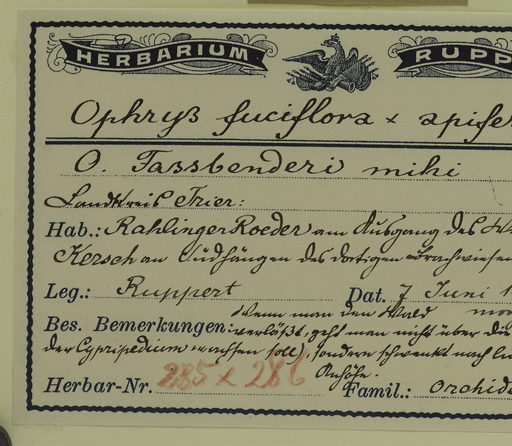 HERBARIUM RUPP
Ophrys fuciflora x apifer
O. Fassbenderi mihi
Landkreis Trier:
Hab.: Rahlinger Roeder am Ausgang des
Kersch an Südhängen des dortigen Brachwiesen
Leg.: Ruppert Dat. 7 Juni 1
Wenn man den Wald
Bes. Bemerkungen: verläßt, geht man nicht über die
der Cypripedium wachsen soll), sondern schwenkt nach
Anhöhe.
Herbar-Nr. 285 x 286 Famil.: Orchid